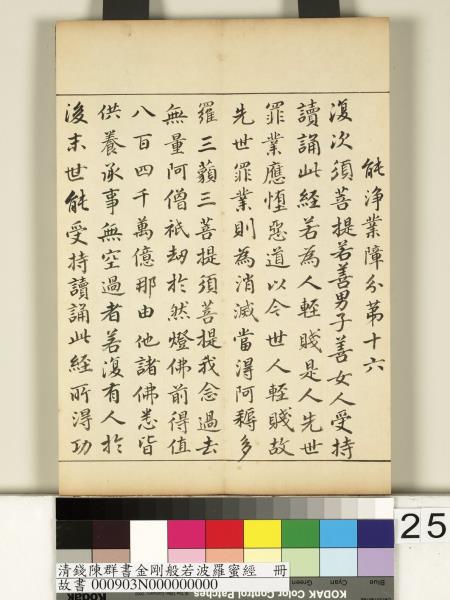 能淨業障分第十六
復次須菩提若善男子善女人受持
讀誦此經若為人輕賤是人先世
罪業應墮惡道以今世人輕賤故
先世罪業則為消滅當得阿耨多
羅三藐三菩提須菩提我念過去
無量阿僧祇劫於然燈佛前得值
八百四千萬億那由他諸佛悉皆
供養承事無空過者若復有人於
後末世能受持讀誦此經所得功
25
清錢陳群書金剛般若波羅蜜經 冊
故書 000903N000000000
Blue
Cyan
Green
Kodak
KODAK Color Control Patches